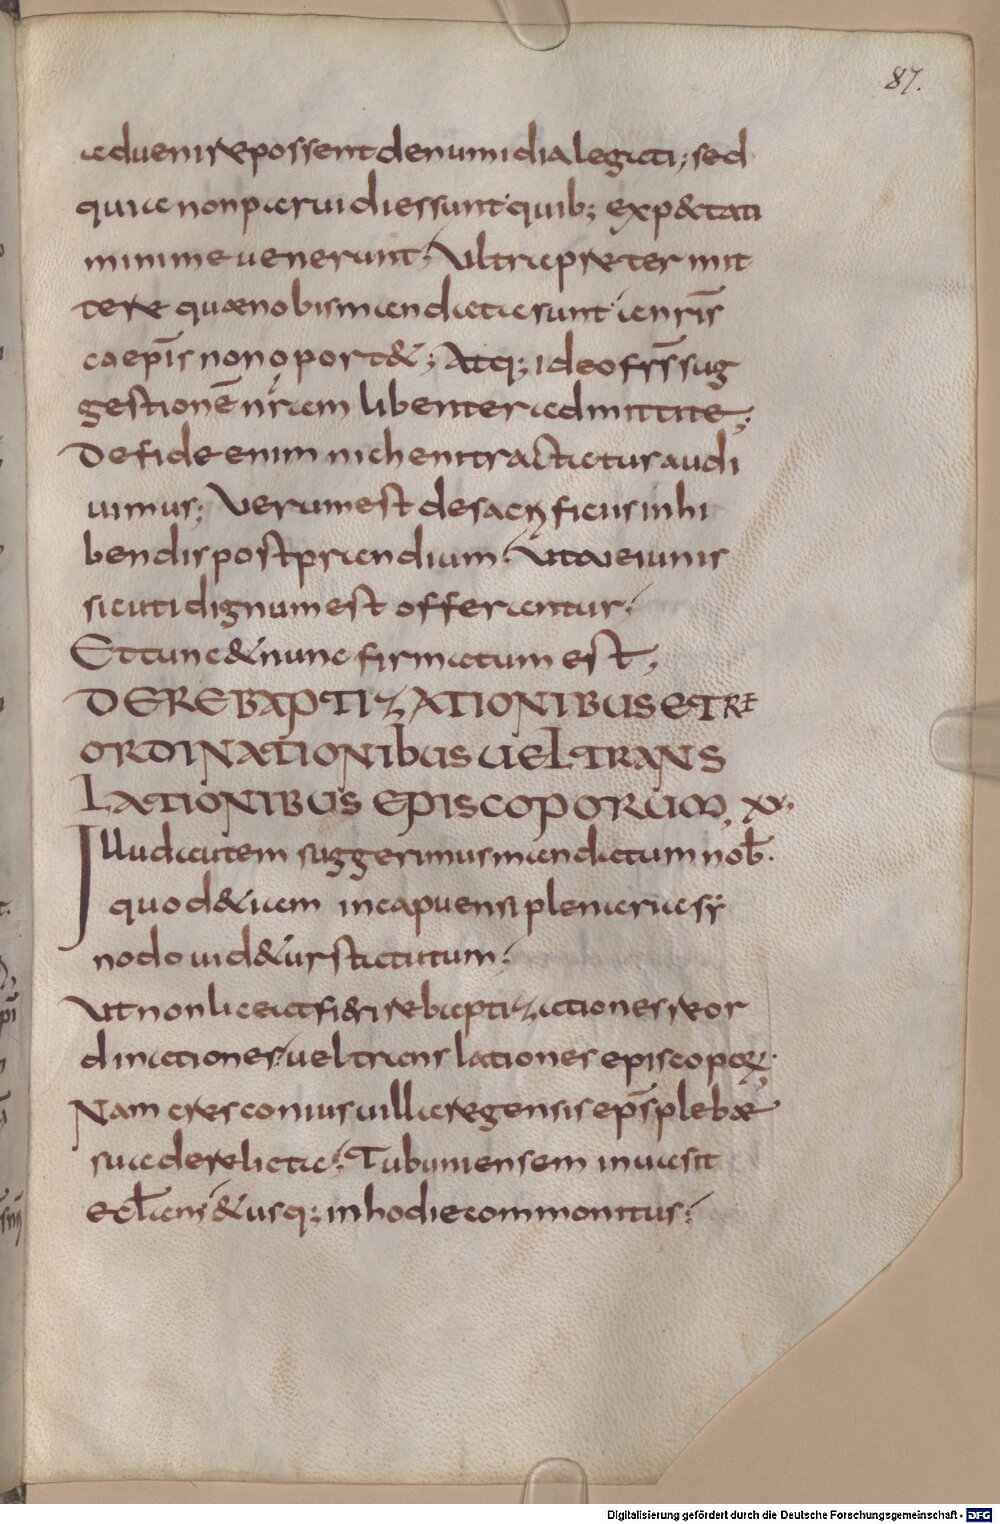 87.
aduenire possent de numidia legati; sed
quia non parui dies sunt quib; exp&tati
minime uenerunt; Vltra preter mit
tere quæ nobis mandata sunt a nr̄is
coepīs non oport&; Atq; ideo frs̄ sug
gestionē nr̄am libenter admittite;
De fide enim nicheni tractatur audi
uimus; Verum est de sacrificiis inhi
bendis post prandium. Vt a ieiunis
sicuti dignum est offerantur;
Et tunc & nunc firmatum est;
DE REBAPTIZATIONIBUS ET RE
ORDINATIONIBUS UEL TRANS
LATIONIBUS EPISCOPORUM, XX.
Illud autem suggerimus mandatum nob̄.
quod &iam in capuensi plenaria sy
nodo uid&ur statutum;
Vt non liceat fi&ri rebaptizationes reor
dinationes uel translationes episcoporꝝ.
Nam cresconius uillaregensis ep̄s plebæ
sua derelicta; Tubuniensem inuasit
eccl̄am & usq; in hodie commonitus;
Digitalisierung gefördert durch die Deutsche Forschungsgemeinschaft - DFG